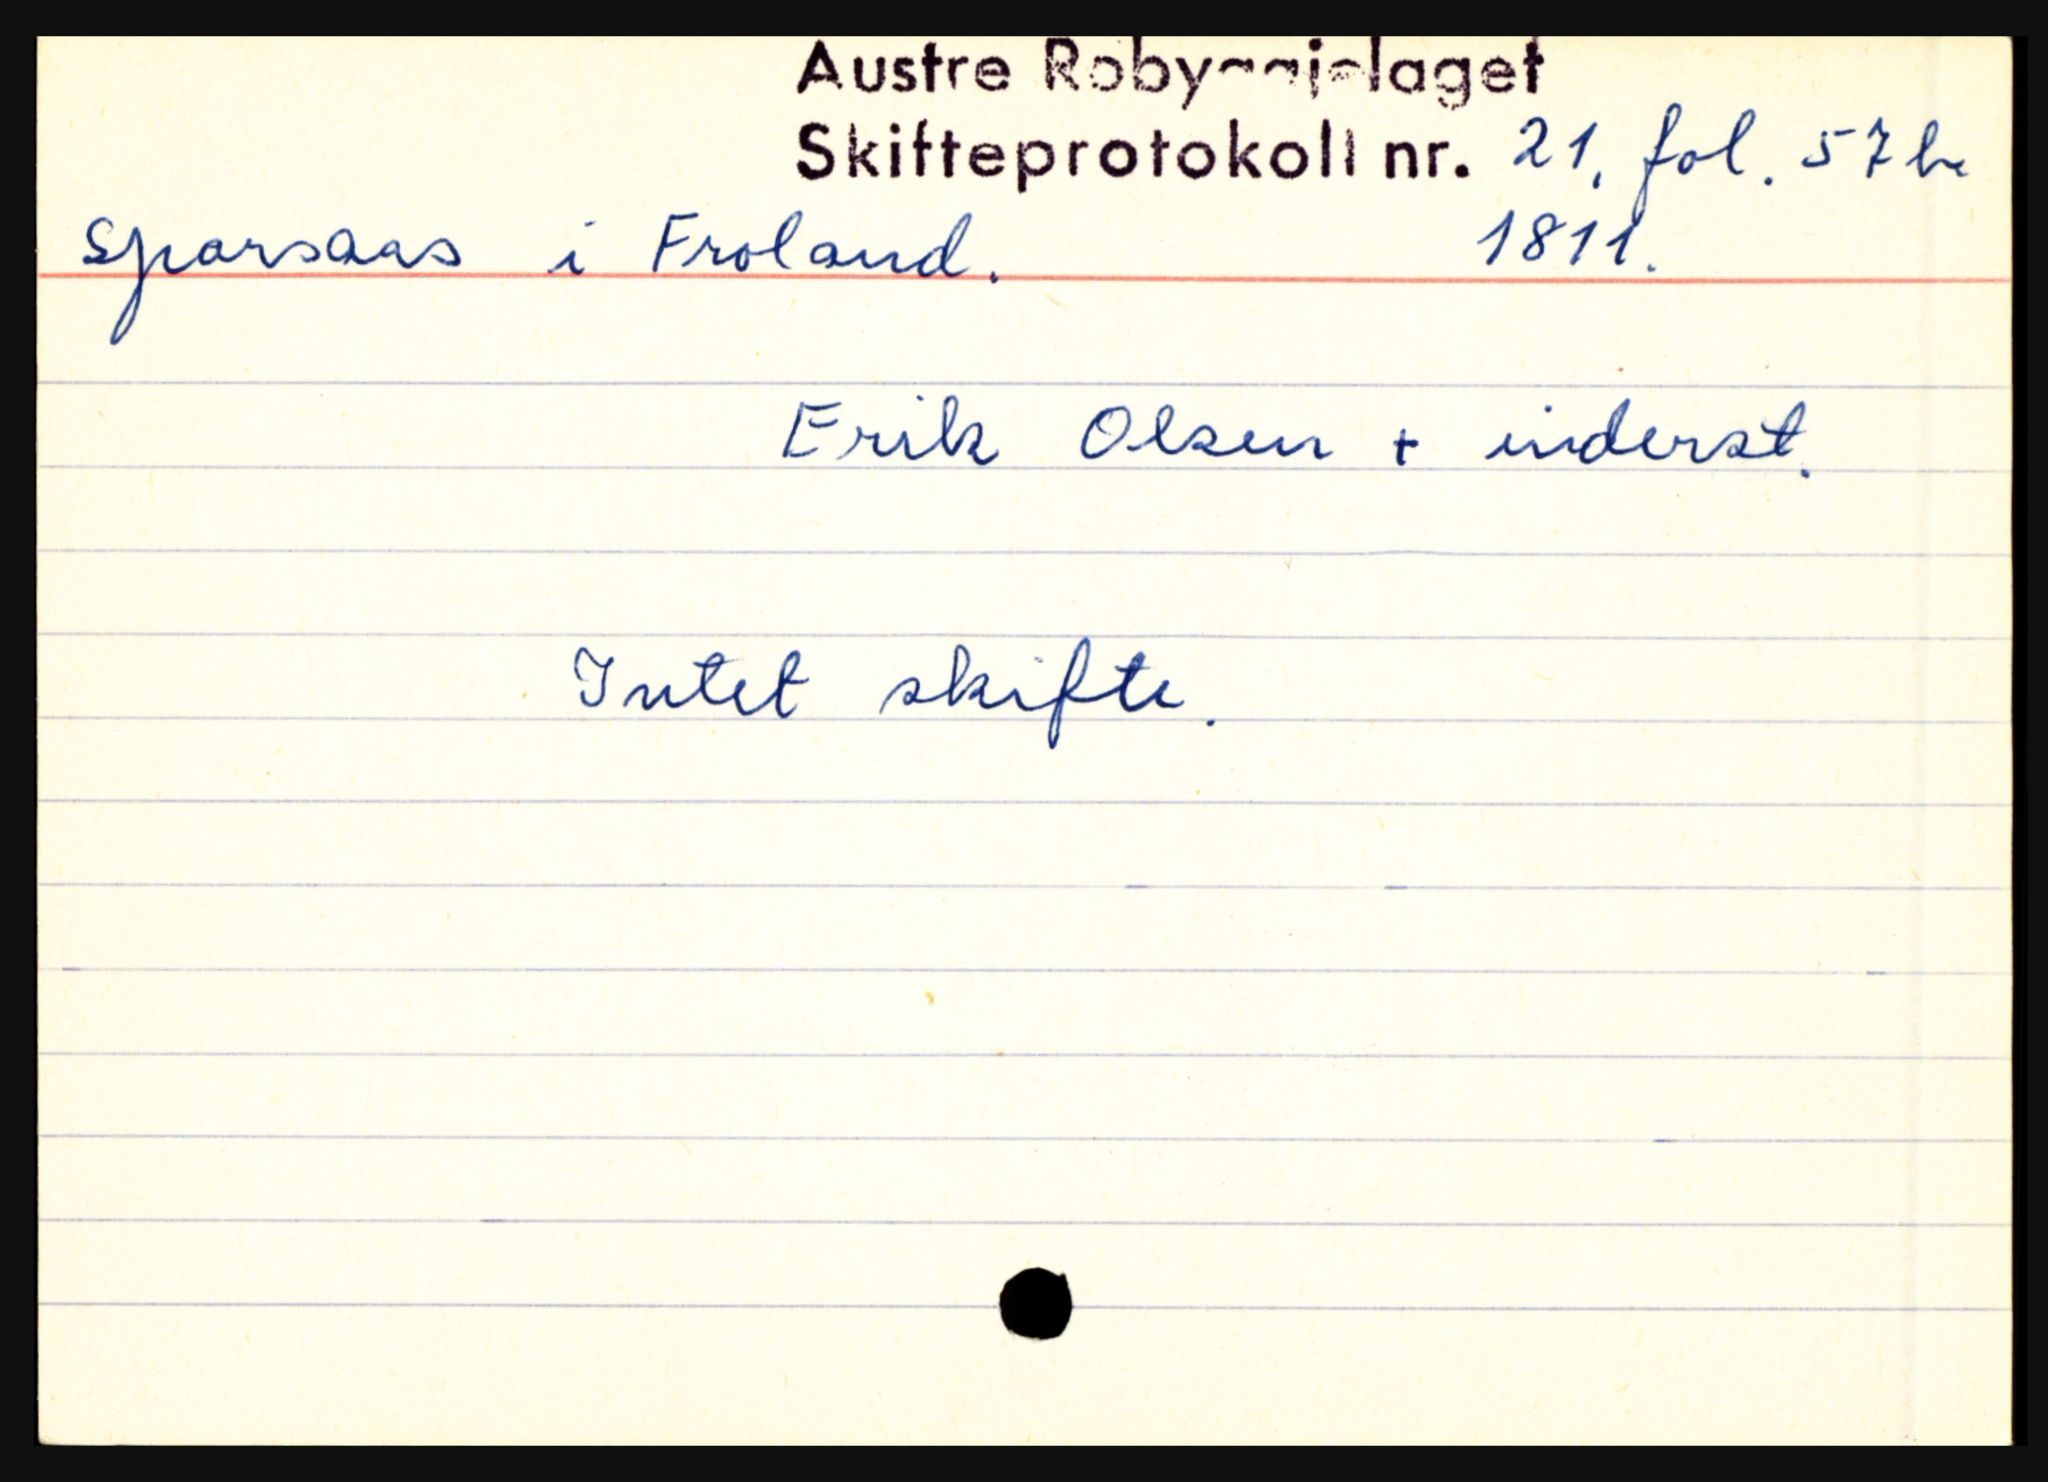 Austre Robyggjelaget
Skifteprotokoll nr. 21, fol. 57b
Sparsaas i Froland. 1811.
Erik Olsen + inderst.
Intet skifte.